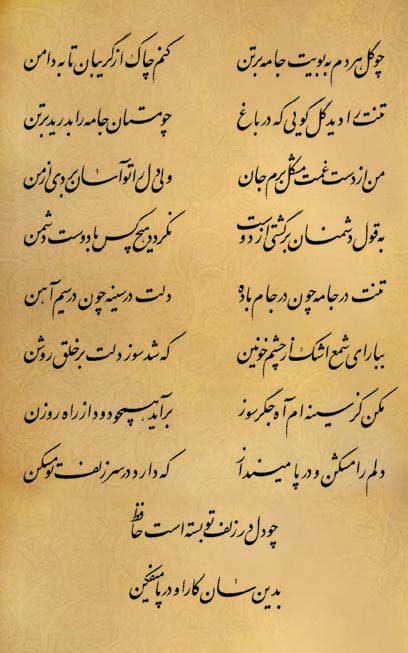 چو گل هر دم به بویت جامه بر تن کنم چاک از گریبان تا به دامن
تنت را دید گل گویی که در باغ چو مستان جامه را بدرید بر تن
من از دست غمت مشکل برم جان ولی دل را تو آسان بردی از من
به قول دشمنان برگشتی از دوست نگردد هیچ کس با دوست دشمن
تنت در جامه چون در جام باده دلت در سینه چون در سیم آهن
ببار ای شمع اشک از چشم خونین که شد سوز دلت بر خلق روشن
مکن کز سینه‌ام آه جگرسوز برآید همچو دود از راه روزن
دلم را مشکن و در پا مینداز که دارد در سر زلف تو مسکن
چو دل در زلف تو بسته است حافظ
بدین سان کار او در پا میفکن